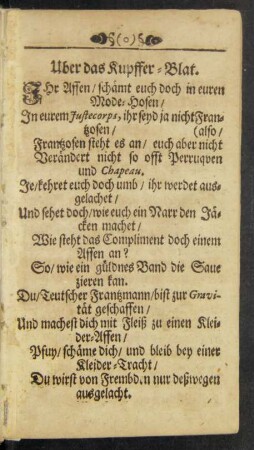 §(o)§
Uber das Kupffer-Blat.
IHr Affen/schämt euch doch in euren
Mode-Hosen/
In eurem Justecorps, ihr seyd ja nicht Fran-
tzosen/ (also/
Frantzosen steht es an/ euch aber nicht
Verändert nicht so offt Perruqven
und Chapeau,
Je/kehret euch doch umb/ ihr werdet aus-
gelachet/
Und sehet doch/wie euch ein Narr den Jä-
cken machet/
Wie steht das Compliment doch einem
Affen an?
So/wie ein güldnes Band die Saue
zieren kan.
Du/Teutscher Frantzmann/bist zur Gravi-
tät geschaffen/
Und machest dich mit Fleiß zu einen Klei-
der-Affen/
Pfuy/schäme dich/ und bleib bey einer
Kleider-Tracht/
Du wirst von Frembd.n nur deßwegen
ausgelacht.